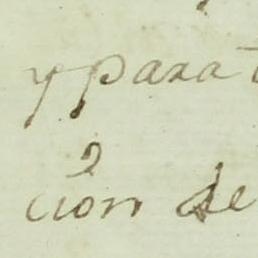 y para
cion de